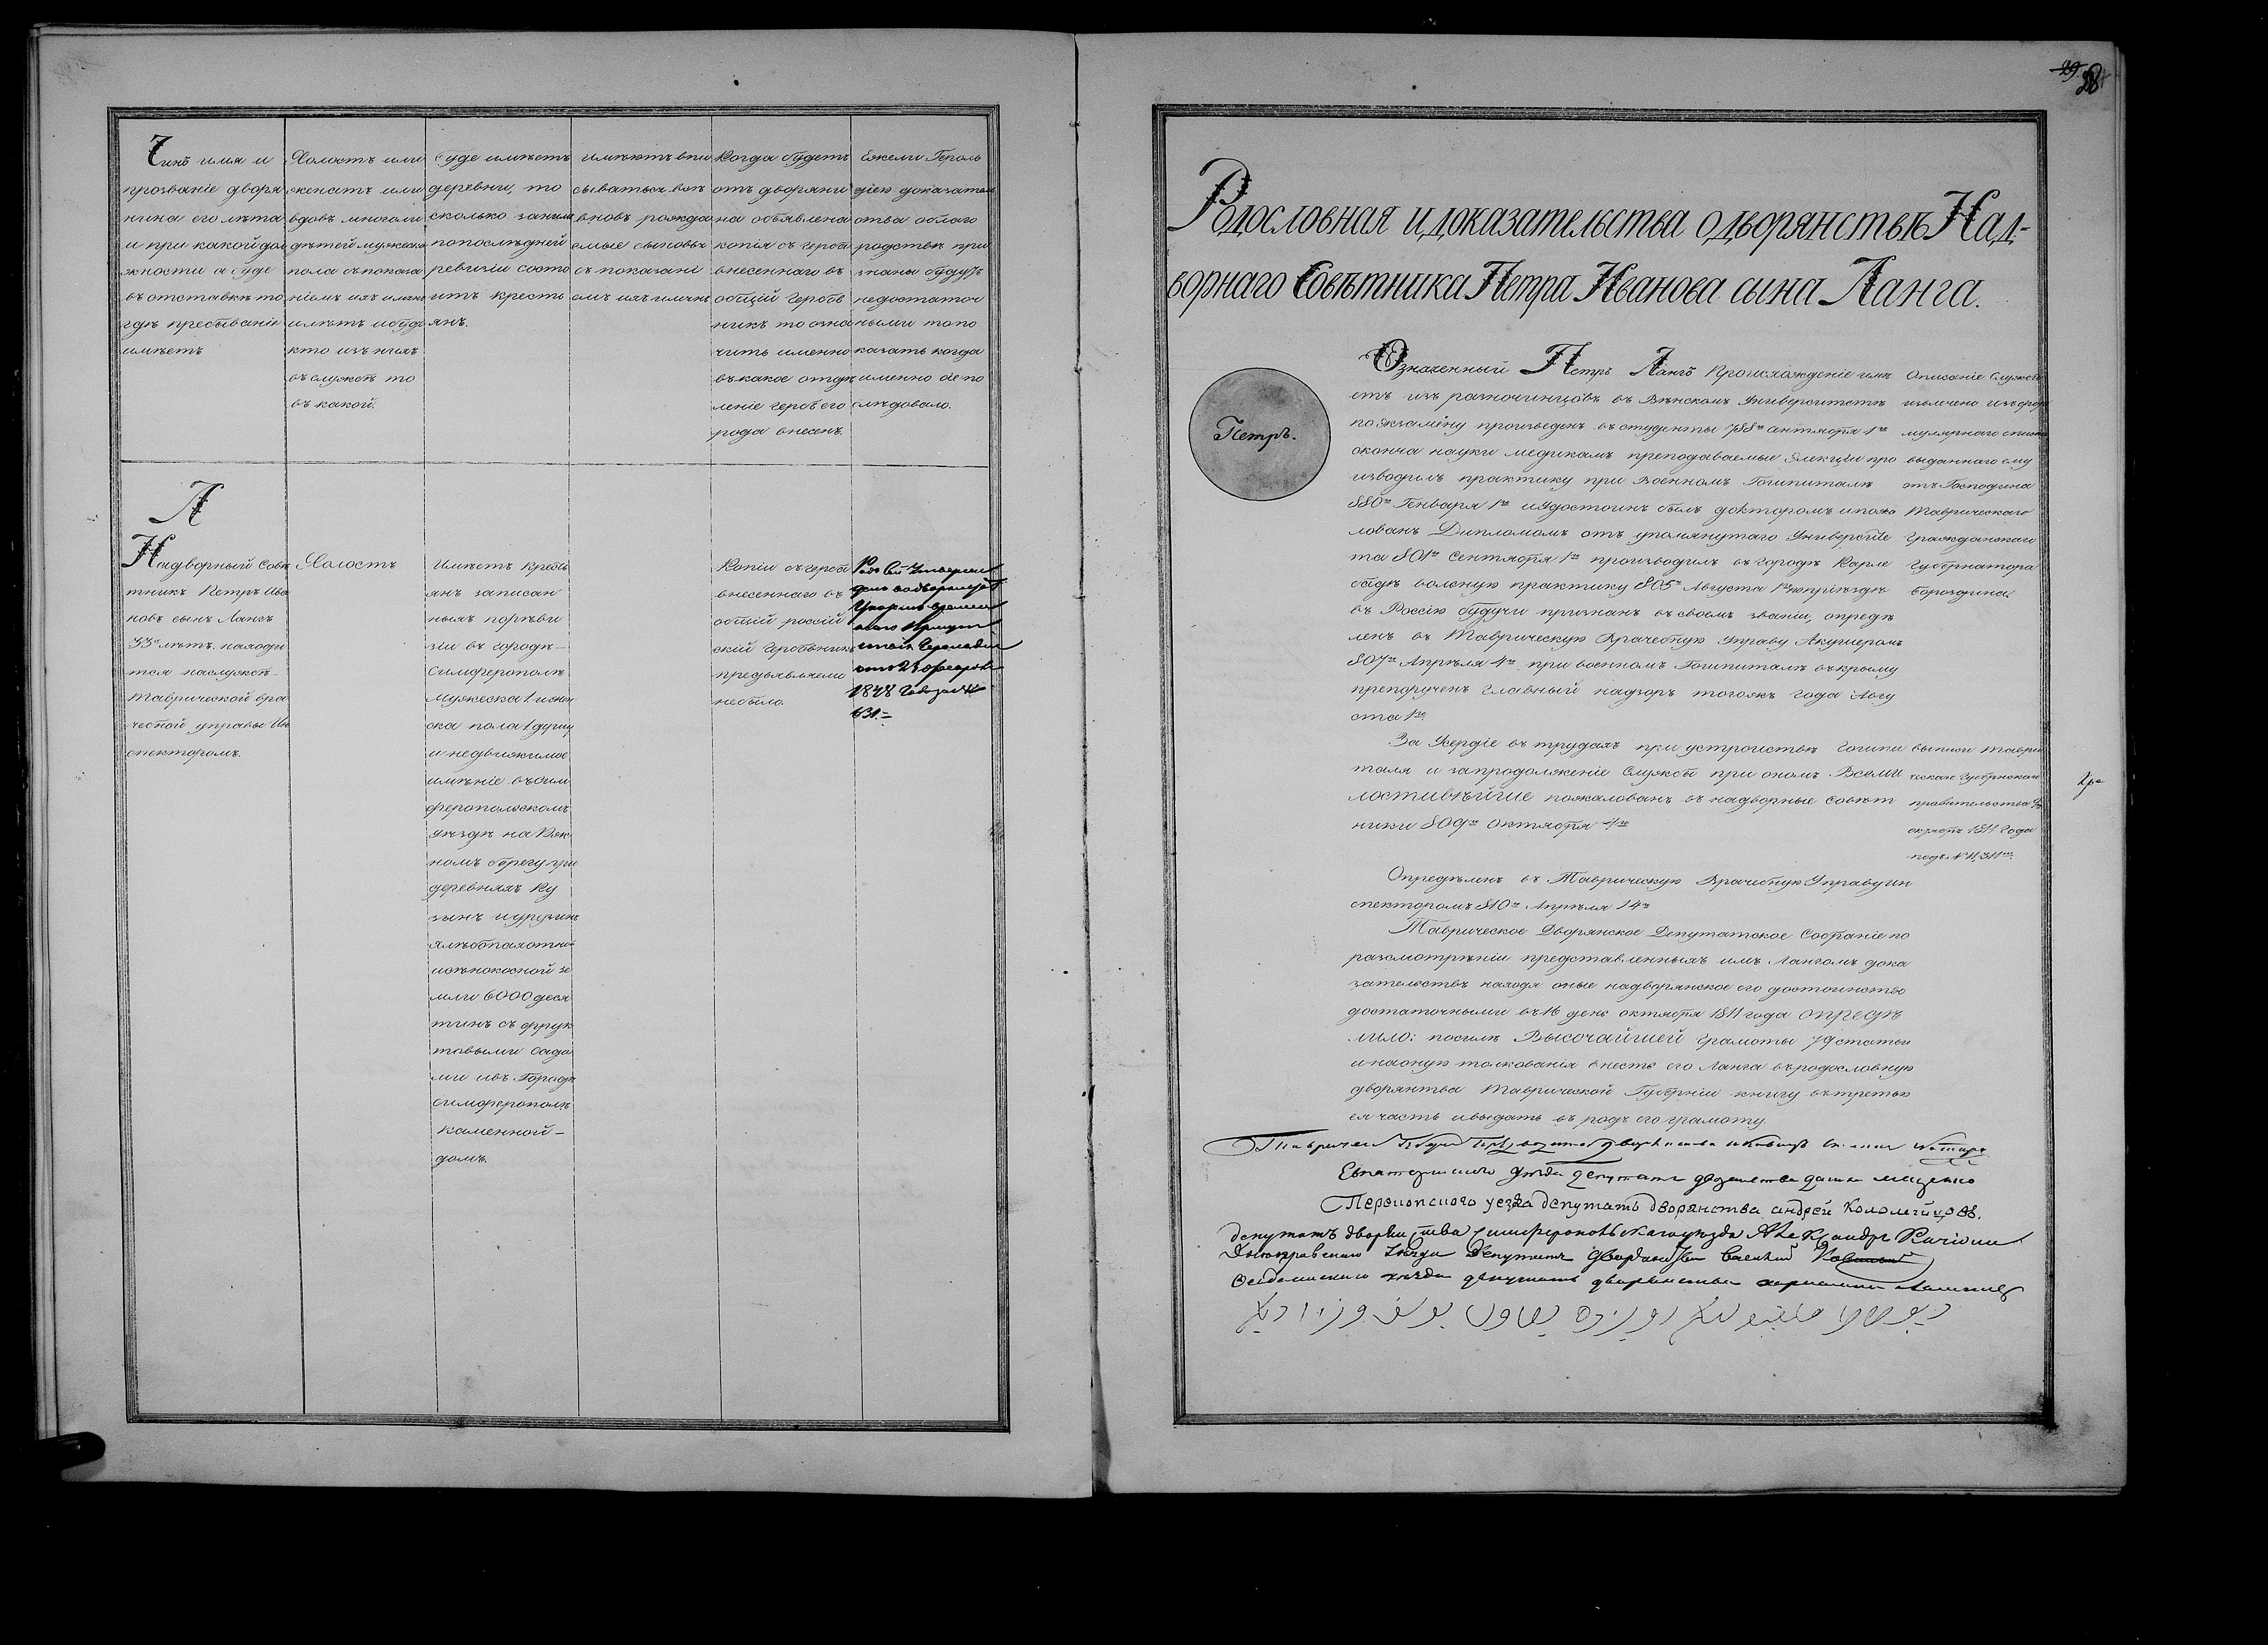 Чинъ имя и
прозваніе дворя
нина его лѣта
и при какой дол
жности а буде
въ отставкѣ то
гдѣ пребываніе
имѣетъ
Холостъ или
женатъ или
вдовъ много ли
дѣтей мужеска
пола съ показа
ніемъ ихъ имянъ
имѣетъ и буде
кто изъ нихъ
въ службѣ то
въ какой.
буде имѣетъ
деревни, то
сколько за ними
по послѣдней
ревизіи состо
итъ кресть
янъ.
имѣютъ впи
сываться вся
вновь рожда
емые сыновья
съ показані
емъ ихъ имянъ
Когда будетъ
отъ дворяни
на объявлена
копія съ герба
внесеннаго въ
общій гербов
никъ то озна
чить именно
въ какое отдѣ
леніе гербъ его
рода внесенъ.
Ежели Героль
діею доказатель
ства облаго
родствѣ при
знаны будутъ
недостаточ
ными то по
казать когда
именно сіе по
слѣдовало.
Л
Надворный Совѣ
тникъ Петръ Ива
новъ сынъ Лангъ
33 лѣтъ, находи
тся на службѣ
Таврической вра
чебной управы Ин
спекторомъ.
Холостъ
Имѣетъ кресть
янъ записан
ныхъ по реви
зіи въ городѣ
Симферополѣ
мужеска 1. и жен
ска пола 1. душу
и недвижимое
имѣніе въ Сим
феропольскомъ
уѣздѣ на Юж
номъ берегу при
деревняхъ Ку
и сѣнокосной зе
мли 6000 деся
тинъ съ фрук
товыми сада
ми и въ Городѣ
Симферополѣ
каменной
домъ.
Копіи съ герба
внесеннаго въ
общій россій
скій Гербовникъ
предъявляемо
не было.
1848 Года за №
631.
29. 28
Родословная и доказательства о дворянствѣ Над-
ворнаго Совѣтника Петра Иванова сына Ланга.
Петръ.
Означенный Петръ Лангъ происхожденіе имѣ
етъ изъ разночинцовъ въ Вѣнскомъ Университетѣ
по экзамену произведенъ въ студенты 788 сентября 1
оконча науки медикамъ преподаваемыя лекціи про
изводилъ практику при Военномъ Гошпиталѣ
Генваря 1 и удостоинъ былъ докторомъ и пожа
лованъ Дипломомъ отъ упомянутаго Университе
та 801 Сентября 1 производилъ въ городѣ Карлс
бадѣ вольную практику 805 Августа 1 по пріѣздѣ
въ Россію будучи признанъ въ своемъ званіи, опредѣ
ленъ въ Таврическую Врачебную Управу Акушеромъ
807 Апрѣля 4 при военномъ Гошпиталѣ въ крыму
препорученъ главный надзоръ тогожъ года Авгу
ста 1
Описаніе службы
извлечено изъ фор
мулярнаго списка
выданнаго ему
отъ Господина
Таврическаго
Гражданскаго
Губернатора
Бороздина.
За Усердіе въ трудахъ при устройствѣ гошпи
таля и за продолженіе службы при ономъ Всеми
лостивѣйше пожалованъ въ надворные Совѣт
ники 809 Октября 4
выписи Таври
ческаго Губернскаго
правительства
октября 1811 Года
подъ № 11,311
Опредѣленъ въ Таврическую Врачебную Управу Ин
спекторомъ 810 Апрѣля 14
Таврическое Дворянское Депутатское Собраніе по
разсмотрѣніи представленныхъ имъ Лангомъ дока
зательствъ находя оные на дворянское его достоинство
достаточными въ 16 день октября 1811 года опредѣ
лило: по силѣ Высочайшей грамоты 79 статьи
и на оную толкованія внесть его Ланга въ родословную
дворянства Таврической Губерніи книгу въ третью
ея часть и выдать въ родъ его грамоту.
Перекопского уезда депутатъ дворянства андрей Коломейцовъ.
депутатъ дворянства Симферопольскаго уѣзда Александръ
Днепровскаго Уѣзда Депутатъ Дворянства Василий
Феодосийскаго уѣзда депутатъ дворянства